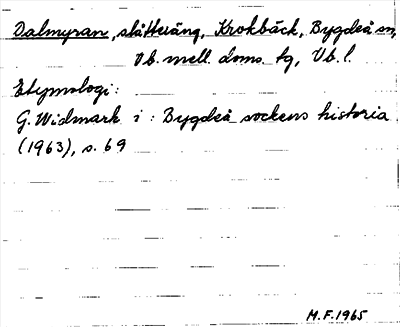 Dalmyran, slåtteräng, Krokbäck, Bygdeå sn,
Vb. mell. doms. tg, Vb. l.
Etymologi:
G. Widmark i: Bygdeå sockens historia
(1963), s. 69
M.F. 1965